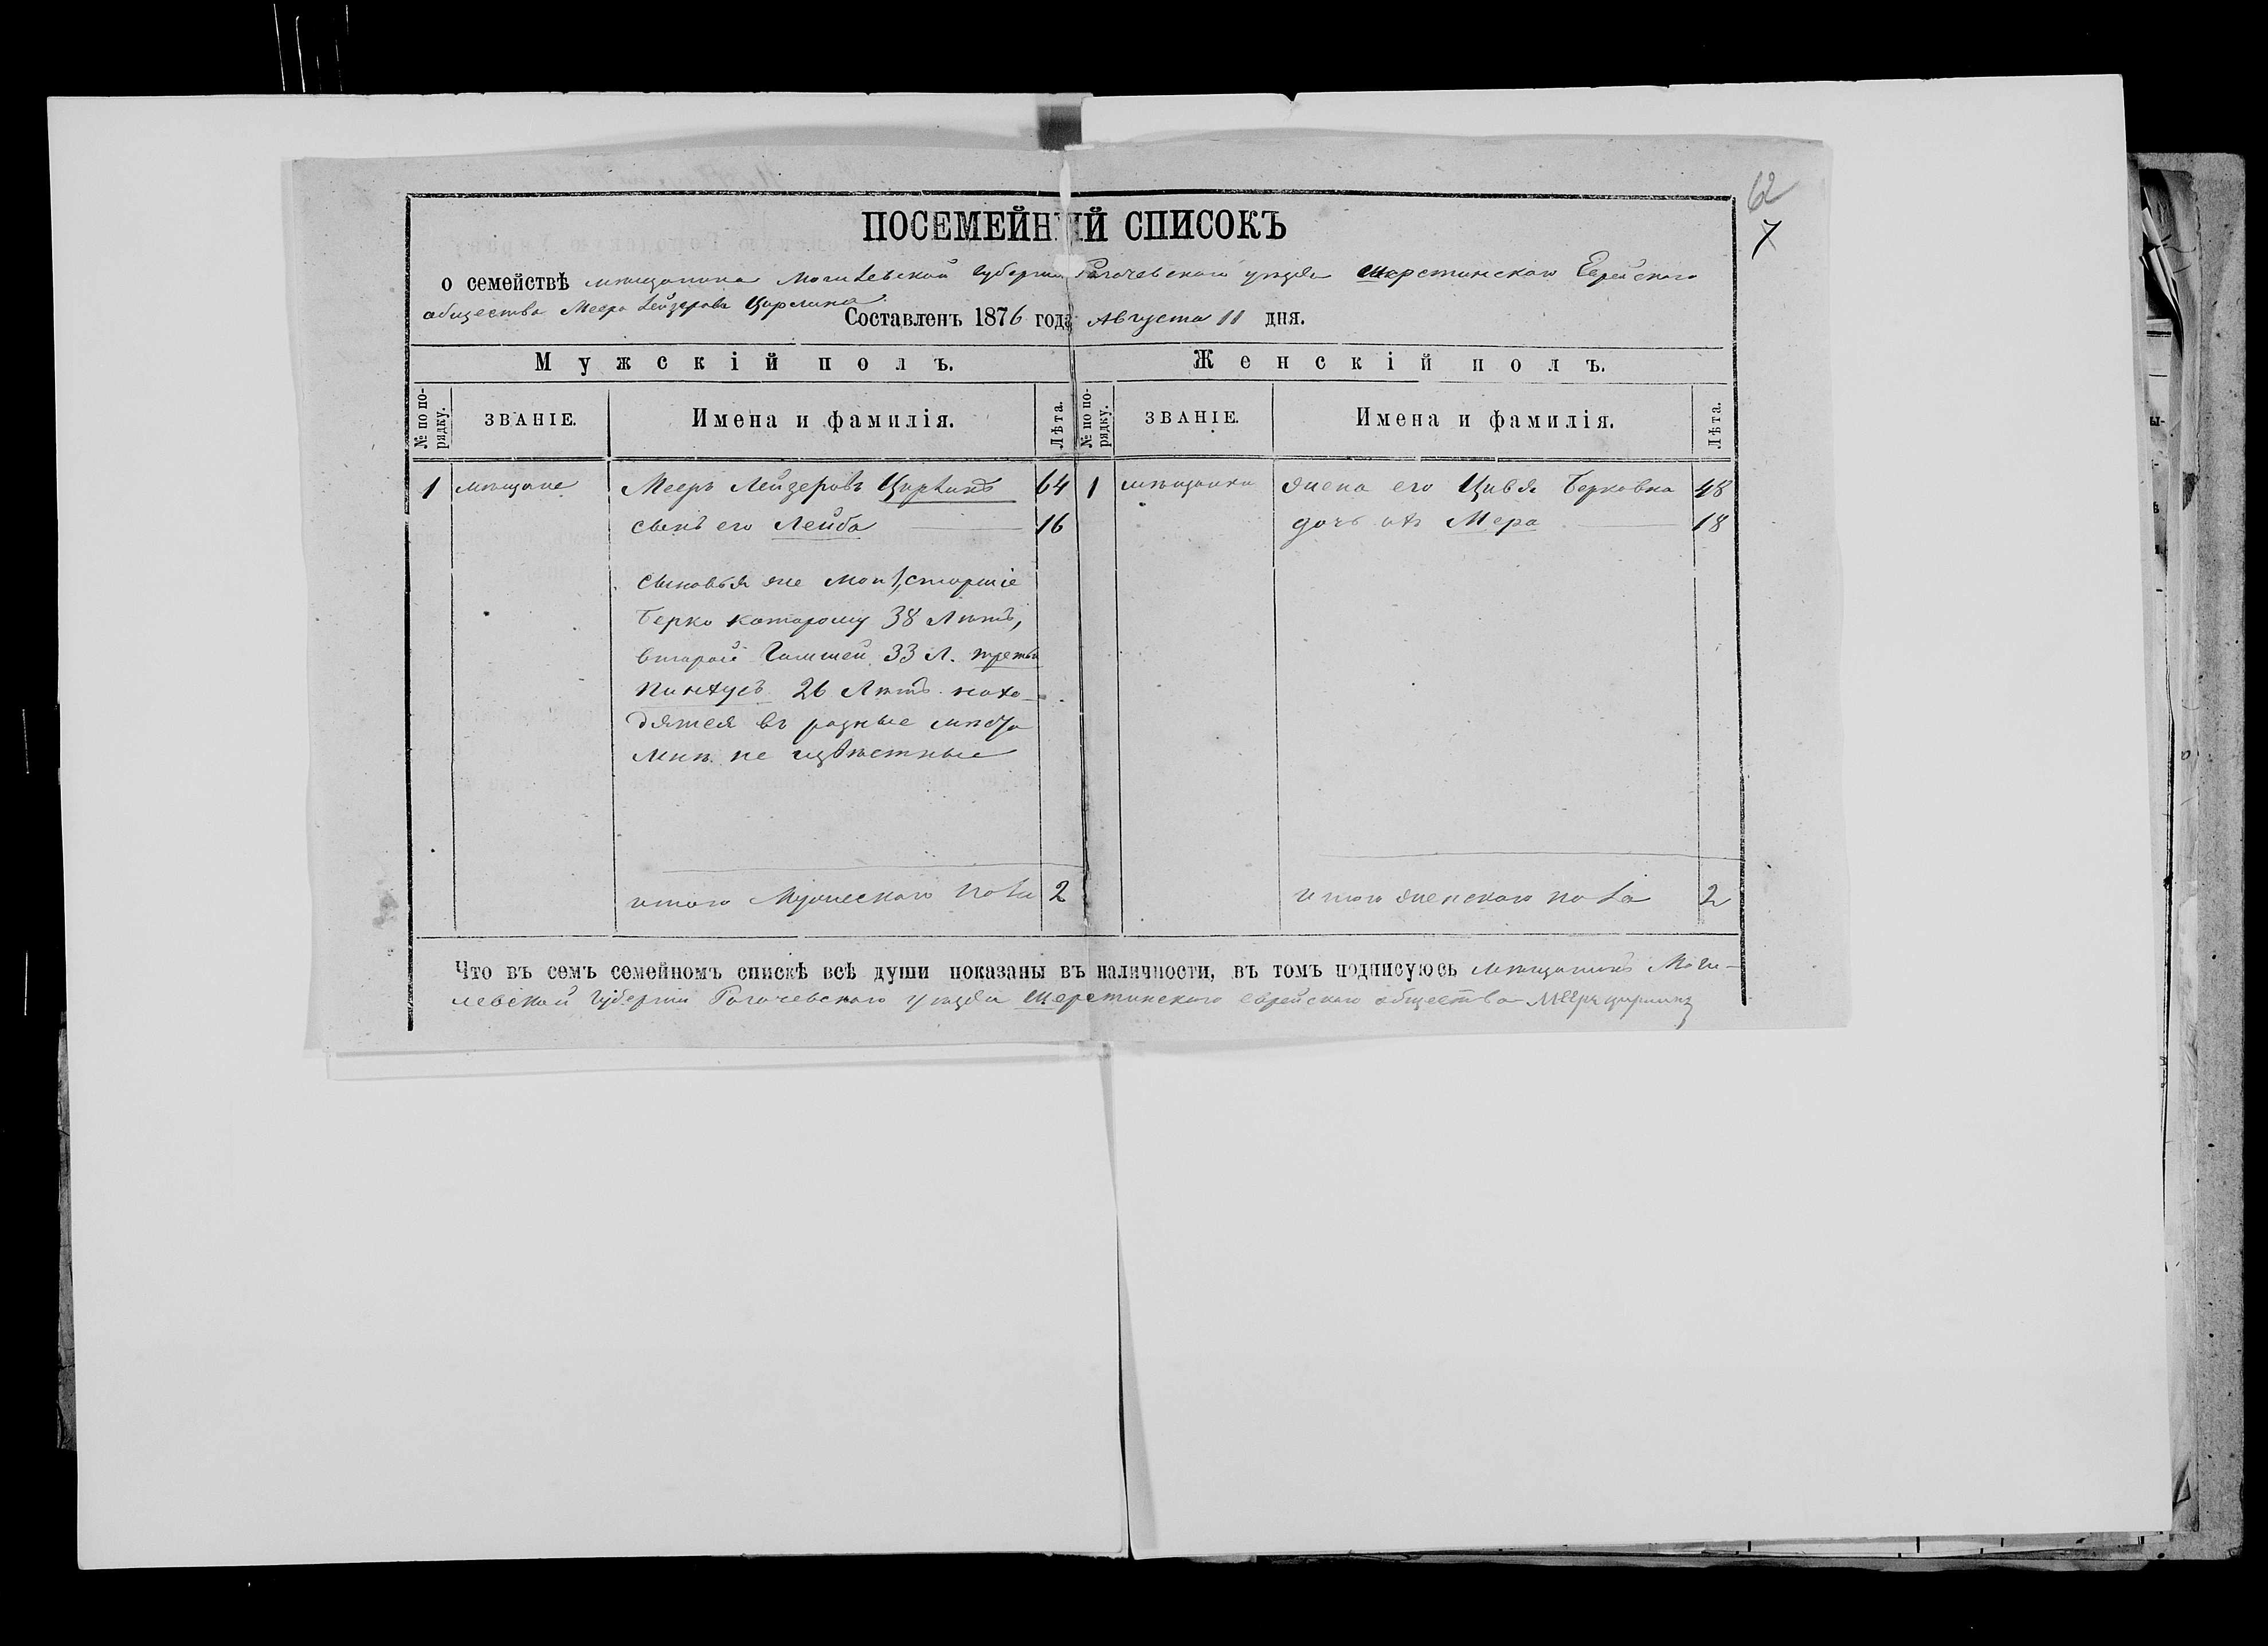 62
7
ПОСЕМЕЙНЫЙ СПИСОКЪ
о семействѣ мѣщанина Могилевской губернiи Рогачевскаго уѣзда Шерстинскаго Еврейскаго
общества Меера Лейзерова Цирлина
Составленъ 1876 года Августа 11 дня.
Мужскій полъ. Женскій полъ.
№ по порядку. ЗВАНІЕ. Имена и фамилія. Лѣта. № по порядку. ЗВАНІЕ. Имена и фамилія. Лѣта.
1 мѣщане Мееръ Лейзеровъ Цирлинъ 64 1 мѣщанки жена его Цивья Берковна 48
сынъ его Лейба 16 дочь их Мера 18
сыновья же мои, старшіе
Берко которому 38 лѣтъ,
второй 33 л. третьи
Пинхусъ 26 лѣтъ нахо-
дятся въ разные мѣста
мнѣ не извѣстные
итого мужескаго пола 2 итого женскаго пола 2
Что въ семъ семейномъ спискѣ всѣ души показаны въ наличности, въ томъ подписуюсь мѣщанинъ Моги-
левской губернiи Рогачевскаго уѣзда Шерстинскаго еврейскаго общества Мееръ цирлинъ